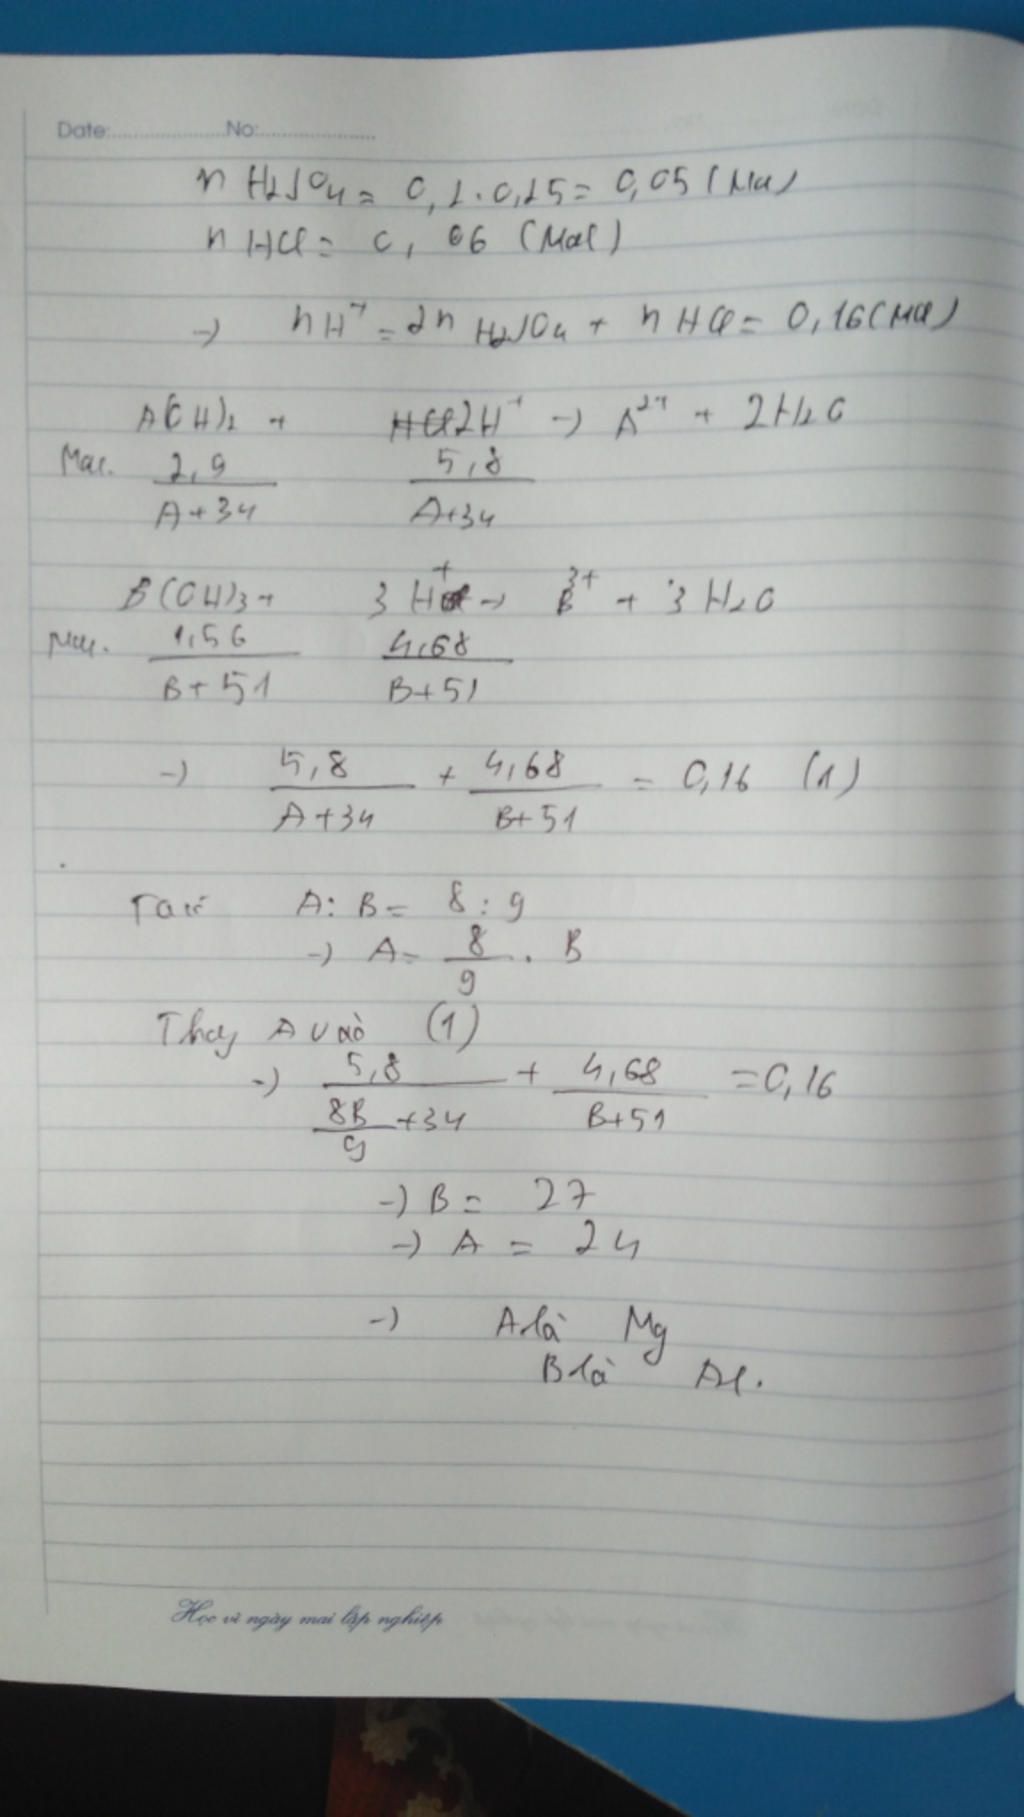 Date:....................No:....................
n H2SO4 = 0,1.0,15 = 0,05 (Mol)
n HCl = 0,06 (Mol)
-) nH+ = 2n H2SO4 + n HCl = 0,16 (Mol)
A(OH)2 + 2H+ -) A2+ + 2H2O
Mol. 2,9/(A+34) 5,8/(A+34)
B(OH)3 + 3H+ -) B3+ + 3H2O
Mol. 1,56/(B+51) 4,68/(B+51)
-) 5,8/(A+34) + 4,68/(B+51) = 0,16 (1)
Ta có A: B = 8 : 9
-) A = 8/9 . B
Thay A vào (1)
-) 5,8/(8B/9 +34) + 4,68/(B+51) = 0,16
-) B = 27
-) A = 24
-) A là Mg
B là Al.
Học vì ngày mai lập nghiệp